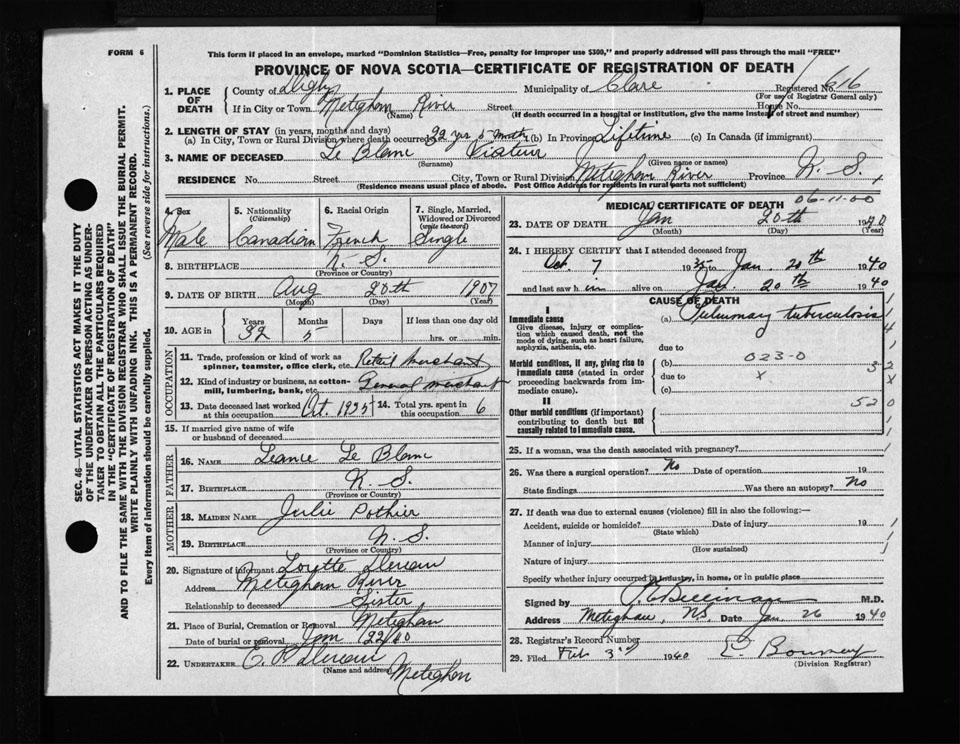 FORM 6
This form if placed in an envelope, marked "Dominion Statistics—Free, penalty for improper use $300," and properly addressed will pass through the mail "FREE"
PROVINCE OF NOVA SCOTIA—CERTIFICATE OF REGISTRATION OF DEATH
1. PLACE OF DEATH County of Digby Municipality of Clare Registered No. 616
(For use of Registrar General only)
If in City or Town Meteghan River Street House No.
(Name) (If death occurred in a hospital or institution, give the name instead of street and number)
2. LENGTH OF STAY (in years, months and days)
(a) In City, Town or Rural Division where death occurred 32 yrs 5 mths (b) In Province Lifetime (c) In Canada (if immigrant)
3. NAME OF DECEASED Le Blanc
(Surname) (Given name or names)
RESIDENCE No. Street City, Town or Rural Division Meteghan River Province N. S.
(Residence means usual place of abode. Post Office Address for residents in rural parts not sufficient)
4. Sex
Male
5. Nationality
(Citizenship)
Canadian
6. Racial Origin
French
7. Single, Married, Widowed or Divorced
(write the word)
Single
8. BIRTHPLACE N. S.
(Province or Country)
9. DATE OF BIRTH Aug 20th 1907
(Month) (Day) (Year)
10. AGE in Years Months Days If less than one day old
32 5 hrs. or min.
OCCUPATION
11. Trade, profession or kind of work as spinner, teamster, office clerk, etc. Retail merchant
12. Kind of industry or business, as cotton-mill, lumbering, bank, etc. General merchant
13. Date deceased last worked at this occupation Oct. 1935
14. Total yrs. spent in this occupation 6
15. If married give name of wife or husband of deceased
FATHER
16. NAME Le Blanc
17. BIRTHPLACE N. S.
(Province or Country)
MOTHER
18. MAIDEN NAME Julie Pothier
19. BIRTHPLACE N. S.
(Province or Country)
20. Signature of informant Lorette
Address Meteghan River
Relationship to deceased Sister
21. Place of Burial, Cremation or Removal Meteghan
Date of burial or removal Jan 22/40
22. UNDERTAKER E.
(Name and address) Meteghan
MEDICAL CERTIFICATE OF DEATH
06-11-00
23. DATE OF DEATH Jan 20th 1940
(Month) (Day) (Year)
24. I HEREBY CERTIFY that I attended deceased from
Oct. 7 1935 to Jan. 20th 1940
and last saw him alive on Jan. 20th 1940
CAUSE OF DEATH
I
Immediate cause
Give disease, injury or complication which caused death, not the mode of dying, such as heart failure, asphyxia, asthenia, etc.
(a) Pulmonary tuberculosis
due to
Morbid conditions, if any, giving rise to immediate cause (stated in order proceeding backwards from immediate cause).
(b) 023-0
due to x
(c)
II
Other morbid conditions (if important) contributing to death but not causally related to immediate cause.
520
25. If a woman, was the death associated with pregnancy?
26. Was there a surgical operation? No Date of operation 19
State findings Was there an autopsy? No
27. If death was due to external causes (violence) fill in also the following:—
Accident, suicide or homicide? Date of injury 19
(State which)
Manner of injury
(How sustained)
Nature of injury
Specify whether injury occurred in industry, in home, or in public place
Signed by M.D.
Address Meteghan, N.S. Date Jan. 26 1940
28. Registrar's Record Number
29. Filed Feb 3rd 1940
(Division Registrar)
SEC. 46—VITAL STATISTICS ACT MAKES IT THE DUTY
OF THE UNDERTAKER OR PERSON ACTING AS UNDER-
TAKER TO OBTAIN ALL THE PARTICULARS REQUIRED
IN THE "CERTIFICATE OF REGISTRATION OF DEATH"
AND TO FILE THE SAME WITH THE DIVISION REGISTRAR WHO SHALL ISSUE THE BURIAL PERMIT.
WRITE PLAINLY WITH UNFADING INK. THIS IS A PERMANENT RECORD.
Every item of information should be carefully supplied. (See reverse side for instructions.)